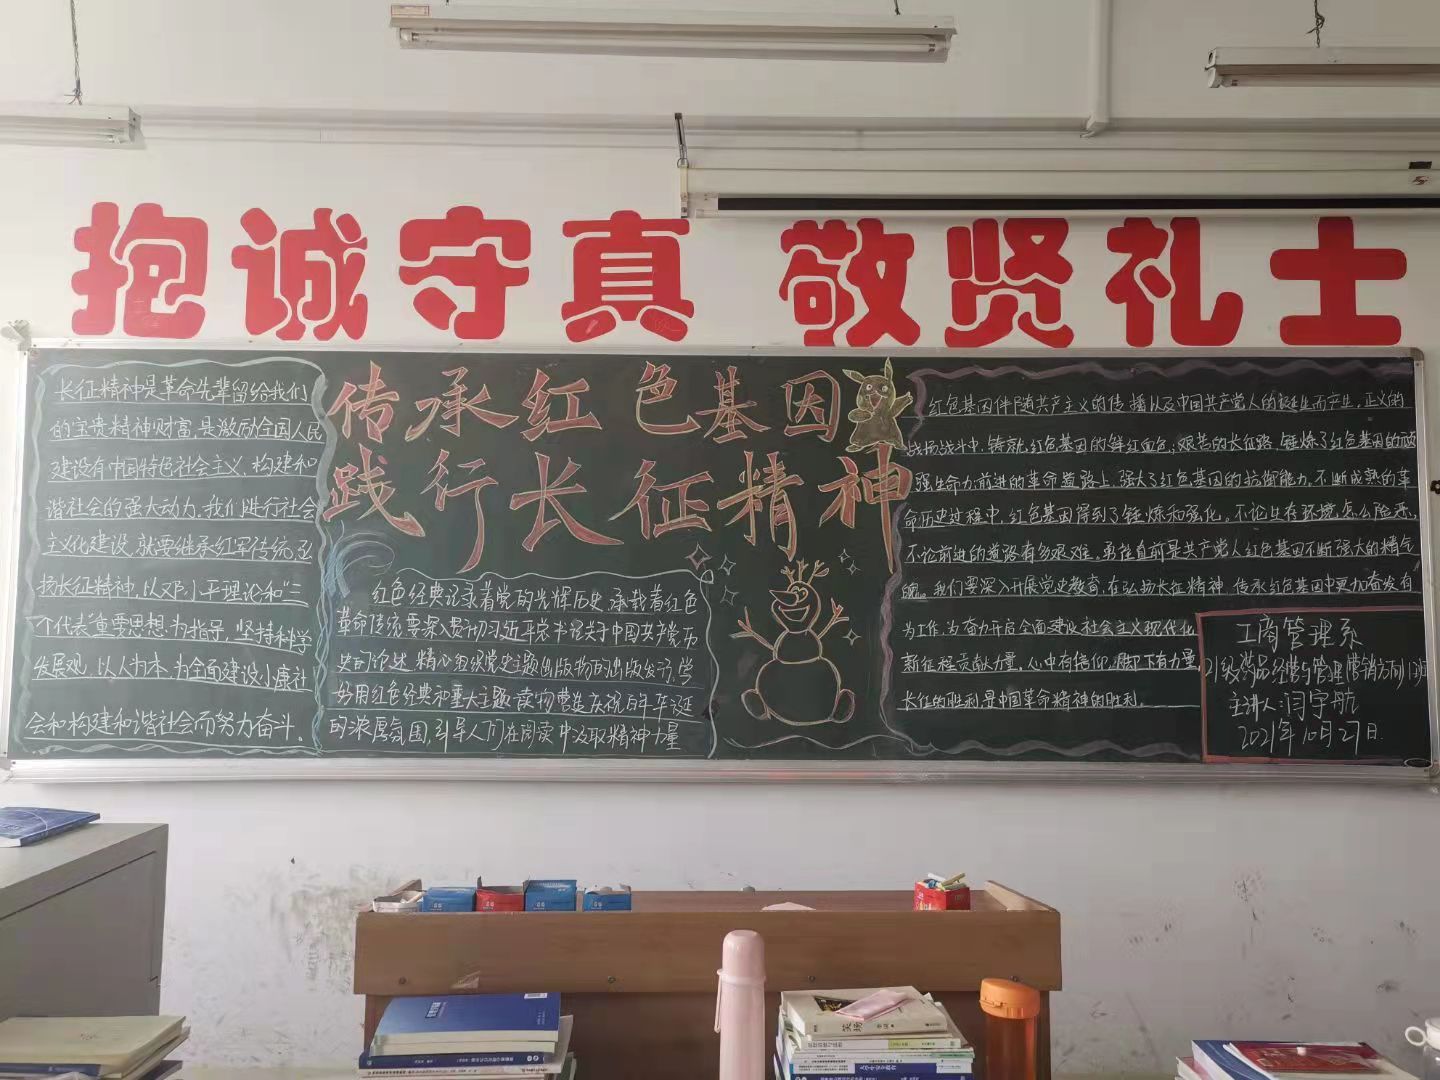 抱诚守真 敬贤礼士
传承红色基因
践行长征精神
长征精神是革命先辈留给我们
的宝贵精神财富,是激励全国人民
建设有中国特色社会主义,构建和
谐社会的强大动力。我们进行社会
主义化建设,就要继承红军传统,弘
扬长征精神,以邓小平理论和“三
个代表”重要思想为指导,坚持科学
发展观,以人为本,为全面建设小康社
会和构建和谐社会而努力奋斗。
红色经典记录着党的光辉历史,承载着红色
革命传统,要深入贯彻习近平总书记关于中国共产党历
史的论述,精心组织党史主题出版物的出版发行,学
好用红色经典和重大主题读物营造庆祝百年华诞
的浓厚氛围,引导人们在阅读中汲取精神力量
红色基因伴随共产主义的传播以及中国共产党人的诞生而产生,正义的
战场战斗中,铸就红色基因的鲜红血色;艰苦的长征路,锤炼了红色基因的顽
强生命力;前进的革命道路上,强大了红色基因的抗御能力。不断成熟的革
命历史过程中,红色基因得到了锤炼和强化。不论生存环境怎么险恶,
不论前进的道路有多艰难,勇往直前是共产党人红色基因不断强大的精气
魄。我们要深入开展党史教育,在弘扬长征精神,传承红色基因中更加奋发有
为工作,为奋力开启全面建设社会主义现代化
新征程贡献力量。心中有信仰,脚下有力量,
长征的胜利,是中国革命精神的胜利。
工商管理系
21级药品经营与管理(营销方向)1班
主讲人:闫宇航
2021年10月27日
笑场